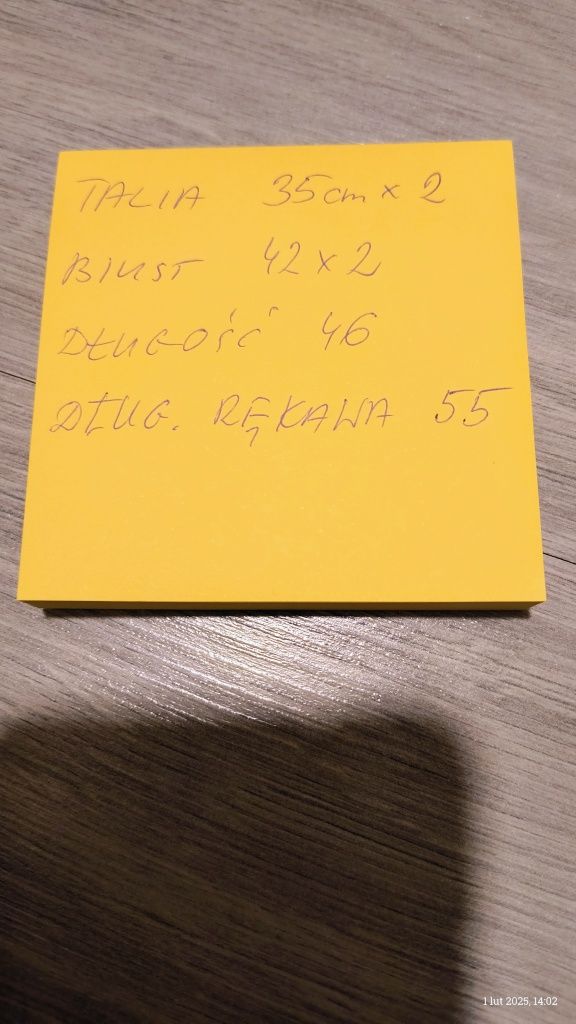 TALIA 35cm x 2
BIUST 42 x 2
DŁUGOŚĆ 46
DŁUG. RĘKAWA 55
1 lut 2025, 14:02